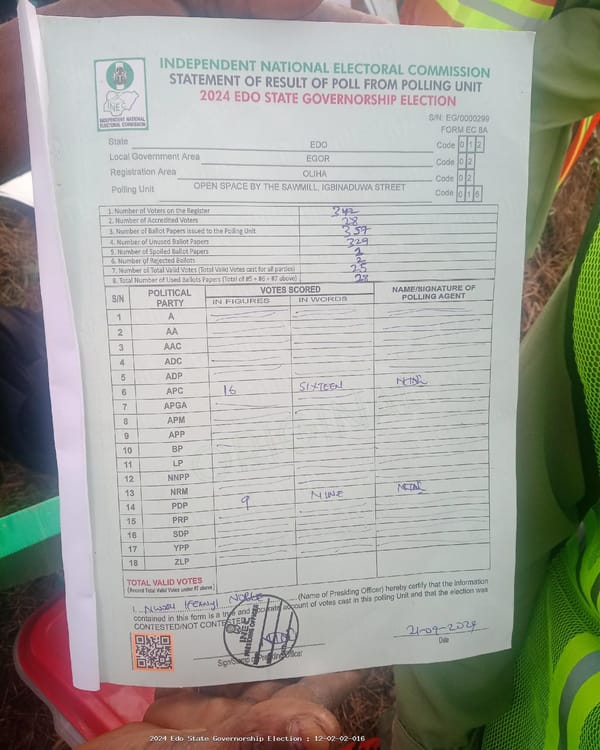 INEC
INDEPENDENT NATIONAL
ELECTORAL COMMISSION
INDEPENDENT NATIONAL ELECTORAL COMMISSION
STATEMENT OF RESULT OF POLL FROM POLLING UNIT
2024 EDO STATE GOVERNORSHIP ELECTION
S/N: EG/0000299
FORM EC 8A
State EDO Code 0 1 2
Local Government Area EGOR Code 0 2
Registration Area OLIHA Code 0 2
Polling Unit OPEN SPACE BY THE SAWMILL, IGBINADUWA STREET Code 0 1 6
1. Number of Voters on the Register 342
2. Number of Accredited Voters 28
3. Number of Ballot Papers issued to the Polling Unit 357
4. Number of Unused Ballot Papers 329
5. Number of Spoiled Ballot Papers 1
6. Number of Rejected Ballots 2
7. Number of Total Valid Votes (Total Valid Votes cast for all parties) 25
8. Total Number of Used Ballots Papers (Total of #5 + #6 + #7 above) 28
S/N POLITICAL PARTY VOTES SCORED NAME/SIGNATURE OF POLLING AGENT
IN FIGURES IN WORDS
1 A
2 AA
3 AAC
4 ADC
5 ADP
6 APC 16 SIXTEEN
7 APGA
8 APM
9 APP
10 BP
11 LP
12 NNPP
13 NRM
14 PDP 9 NINE
15 PRP
16 SDP
17 YPP
18 ZLP
TOTAL VALID VOTES
(Record Total Valid Votes under #7 above)
I, IFEANYI NOBLE (Name of Presiding Officer) hereby certify that the information
contained in this form is a true and accurate account of votes cast in this polling Unit and that the election was
CONTESTED/NOT CONTESTED
INEC
21-09-2024
Sign/Stamp of Presiding Officer
Date
2024 Edo State Governorship Election : 12-02-02-016